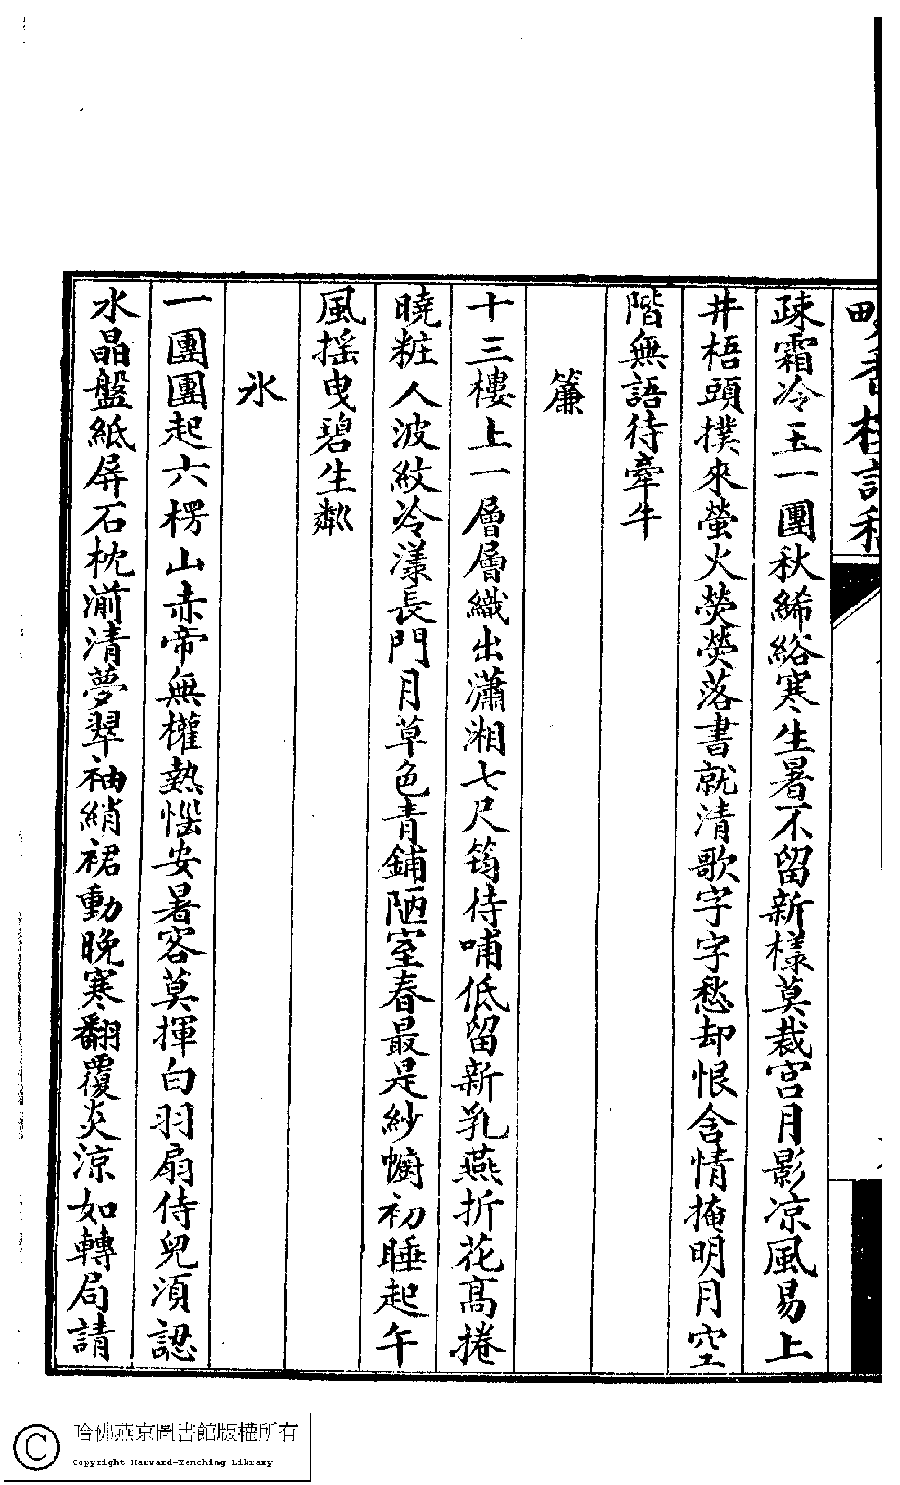 疎霜冷玉一團秋絺綌寒生暑不留新樣莫裁宮月影凉風易上
井梧頭撲來螢火熒熒落書就清歌字字愁却恨含情掩明月空
階無語待牽牛
簾
十三樓上一層層織出瀟湘七尺筠侍哺低留新乳燕折花髙捲
曉粧人波紋冷漾長門月草色青鋪陋室春最是紗幮初睡起午
風摇曳碧生粼
氷
一團團起六楞山赤帝無權熱惱安暑客莫揮白羽扇侍兒須認
水晶盤紙屏石枕湔清夢翠袖綃裙動晚寒翻覆炎涼如轉局請
哈佛燕京圖書館版權所有
Copyright Harvard-Yenching Library